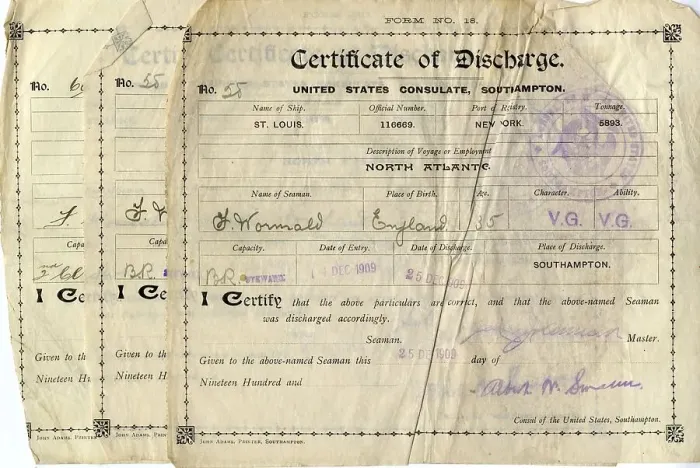 FORM NO. 18.
Certificate of Discharge.
No. 6
No. 55
No. 55
UNITED STATES CONSULATE, SOUTHAMPTON.
Name of Ship. Official Number. Port of Registry. Tonnage.
ST. LOUIS. 116669. NEW YORK. 5893.
Description of Voyage or Employment
NORTH ATLANTIC.
Name of Seaman. Place of Birth. Age. Character. Ability.
F. Wormald England 35 V.G. V.G.
Capacity. Date of Entry. Date of Discharge. Place of Discharge.
B.R. STEWARD 4 DEC 1909 25 DEC 1909 SOUTHAMPTON.
I Certify that the above particulars are correct, and that the above-named Seaman
was discharged accordingly.
Seaman. Master.
Given to the above-named Seaman this 25 DEC 1909 day of
Nineteen Hundred and
Albert W.
Consul of the United States, Southampton.
JOHN ADAMS, PRINTER, SOUTHAMPTON.
F. W
Capa
B.R.
I Ce
Given to th
Nineteen H
JOHN ADAMS, PRINTER
F.
Capa
2nd Cl
I Ce
Given to th
Nineteen Hu
JOHN ADAMS, PRINTER